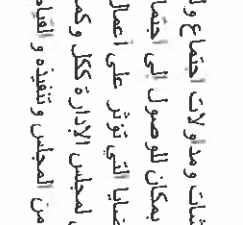 شات ومداولات اجتماع ول
بمكان للوصول إلى اجتما
ضايا التي تؤثر على أعمال
لمجلس الإدارة ككل وكم
من المجلس وتنفيذه و القيا